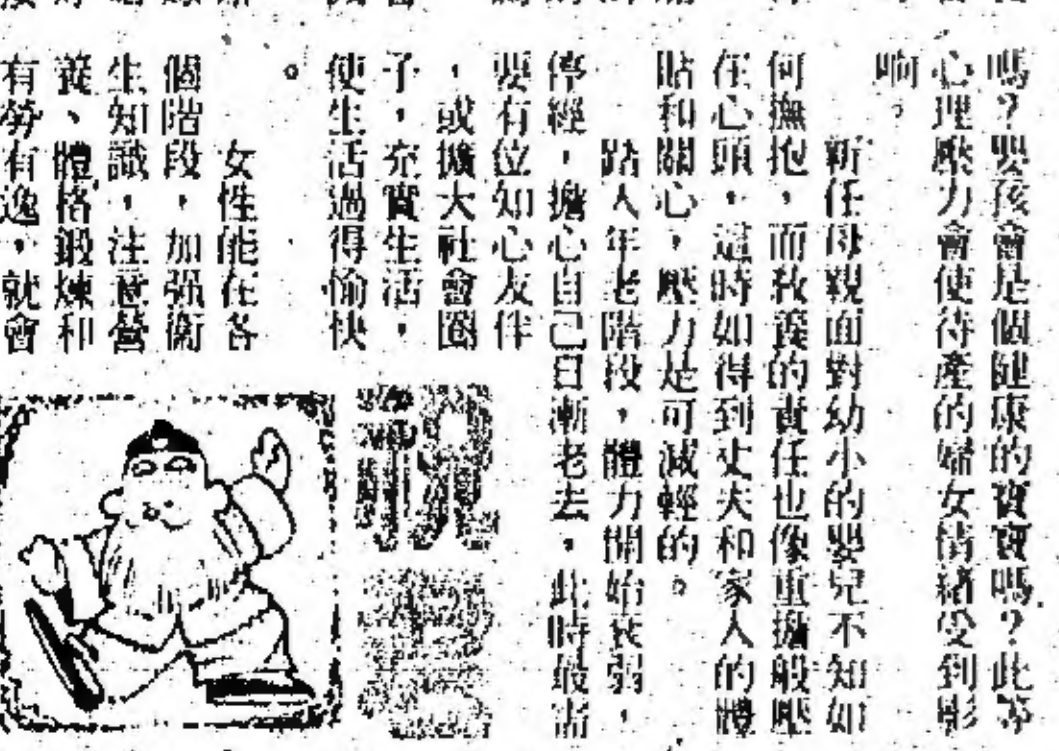 嗎？嬰孩會是個健康的寶寶嗎？此等
心理壓力會使待產的婦女情緒受到影
响。
新任母親面對幼小的嬰兒不知如
何撫抱，而教養的責任也像重擔般壓
在心頭，這時如得到丈夫和家人的體
貼和關心，壓力是可減輕的。
踏入年老階段，體力開始衰弱，
停經，擔心自己日漸老去，此時最需
要有位知心友伴
，或擴大社會圈
子，充實生活，
使生活過得愉快
。
女性能在各
個階段，加强衛
生知識，注意營
養、體格鍛煉和
有勞有逸，就會